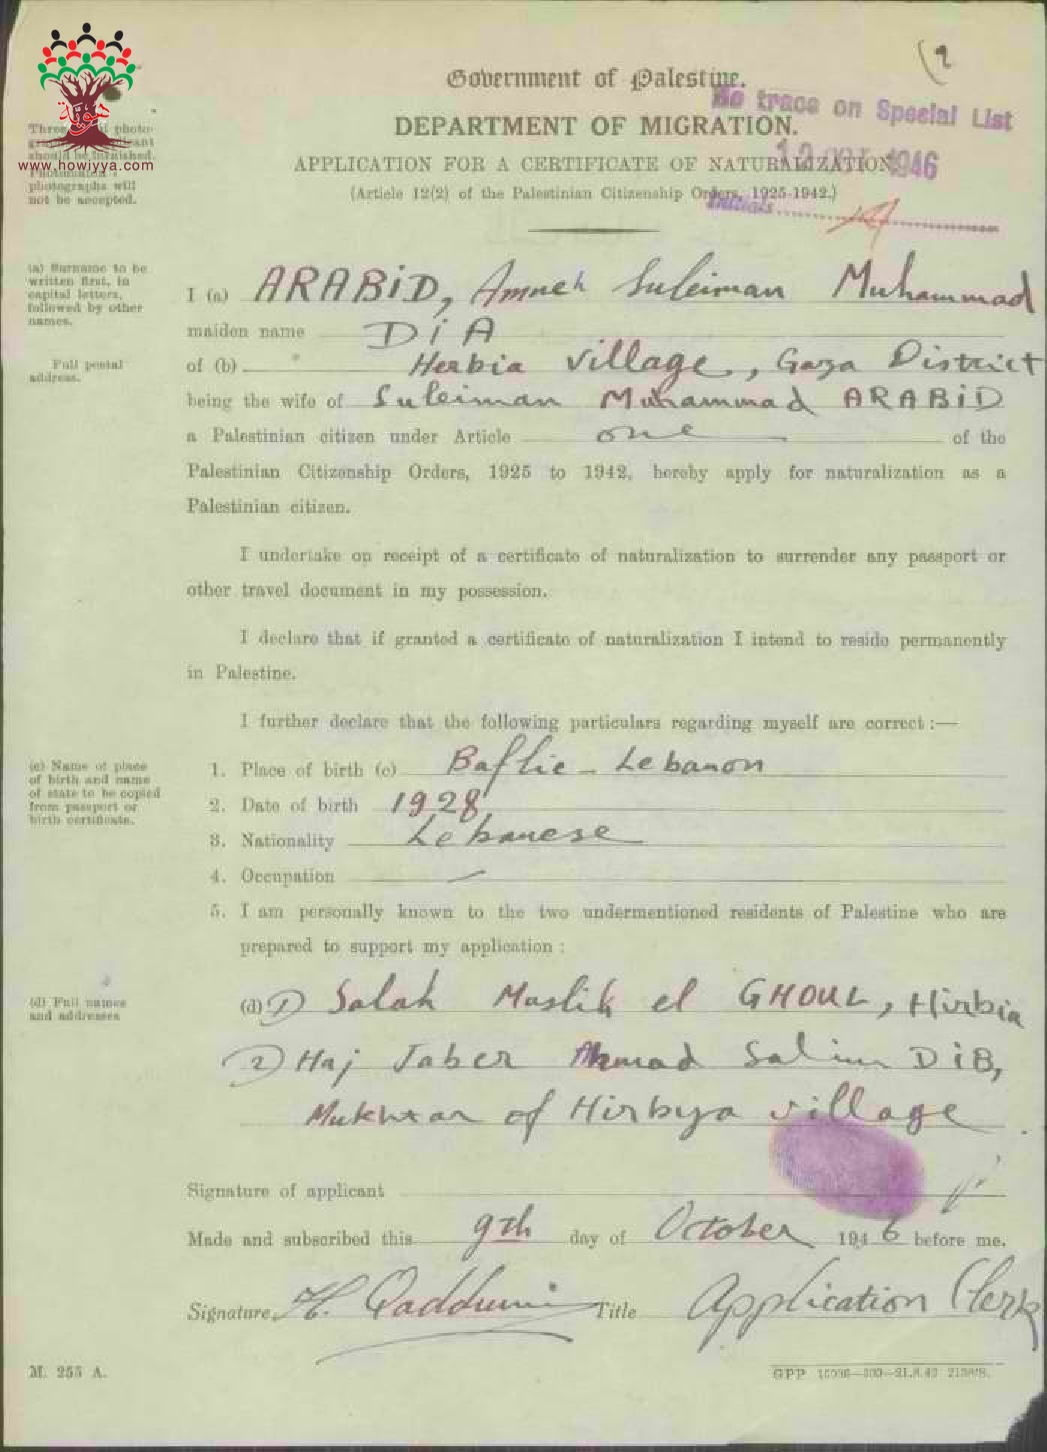 (9
Government of Palestine.
No trace on Special List
DEPARTMENT OF MIGRATION.
APPLICATION FOR A CERTIFICATE OF NATURALIZATION
1946
(Article 12(2) of the Palestinian Citizenship Orders, 1925-1942.)
Initials
Three photo-
should be furnished.
photographs will
not be accepted.
www.howiyya.com
(a) Surname to be
written first, in
capital letters,
followed by other
names.
I (a) ARABiD, Amneh Suleiman Muhammad
maiden name DiA
Full postal
address.
of (b) Herbia village, Gaza District
being the wife of Suleiman Muhammad ARABiD
a Palestinian citizen under Article one of the
Palestinian Citizenship Orders, 1925 to 1942, hereby apply for naturalization as a
Palestinian citizen.
I undertake on receipt of a certificate of naturalization to surrender any passport or
other travel document in my possession.
I declare that if granted a certificate of naturalization I intend to reside permanently
in Palestine.
I further declare that the following particulars regarding myself are correct :—
(c) Name of place
of birth and name
of state to be copied
from passport or
birth certificate.
1. Place of birth (c) Baflie - Lebanon
2. Date of birth 1928
3. Nationality Lebanese
4. Occupation —
5. I am personally known to the two undermentioned residents of Palestine who are
prepared to support my application :
(d) Full names
and addresses
(d) 1) Salah Maslih el GHOUL, Hirbia
2) Haj Jaber Ahmad Salim DiB,
Mukhtar of Hirbya village
Signature of applicant
Made and subscribed this 9th day of October 1946 before me.
Signature H. Qaddumi Title Application Clerk
M. 255 A.
GPP